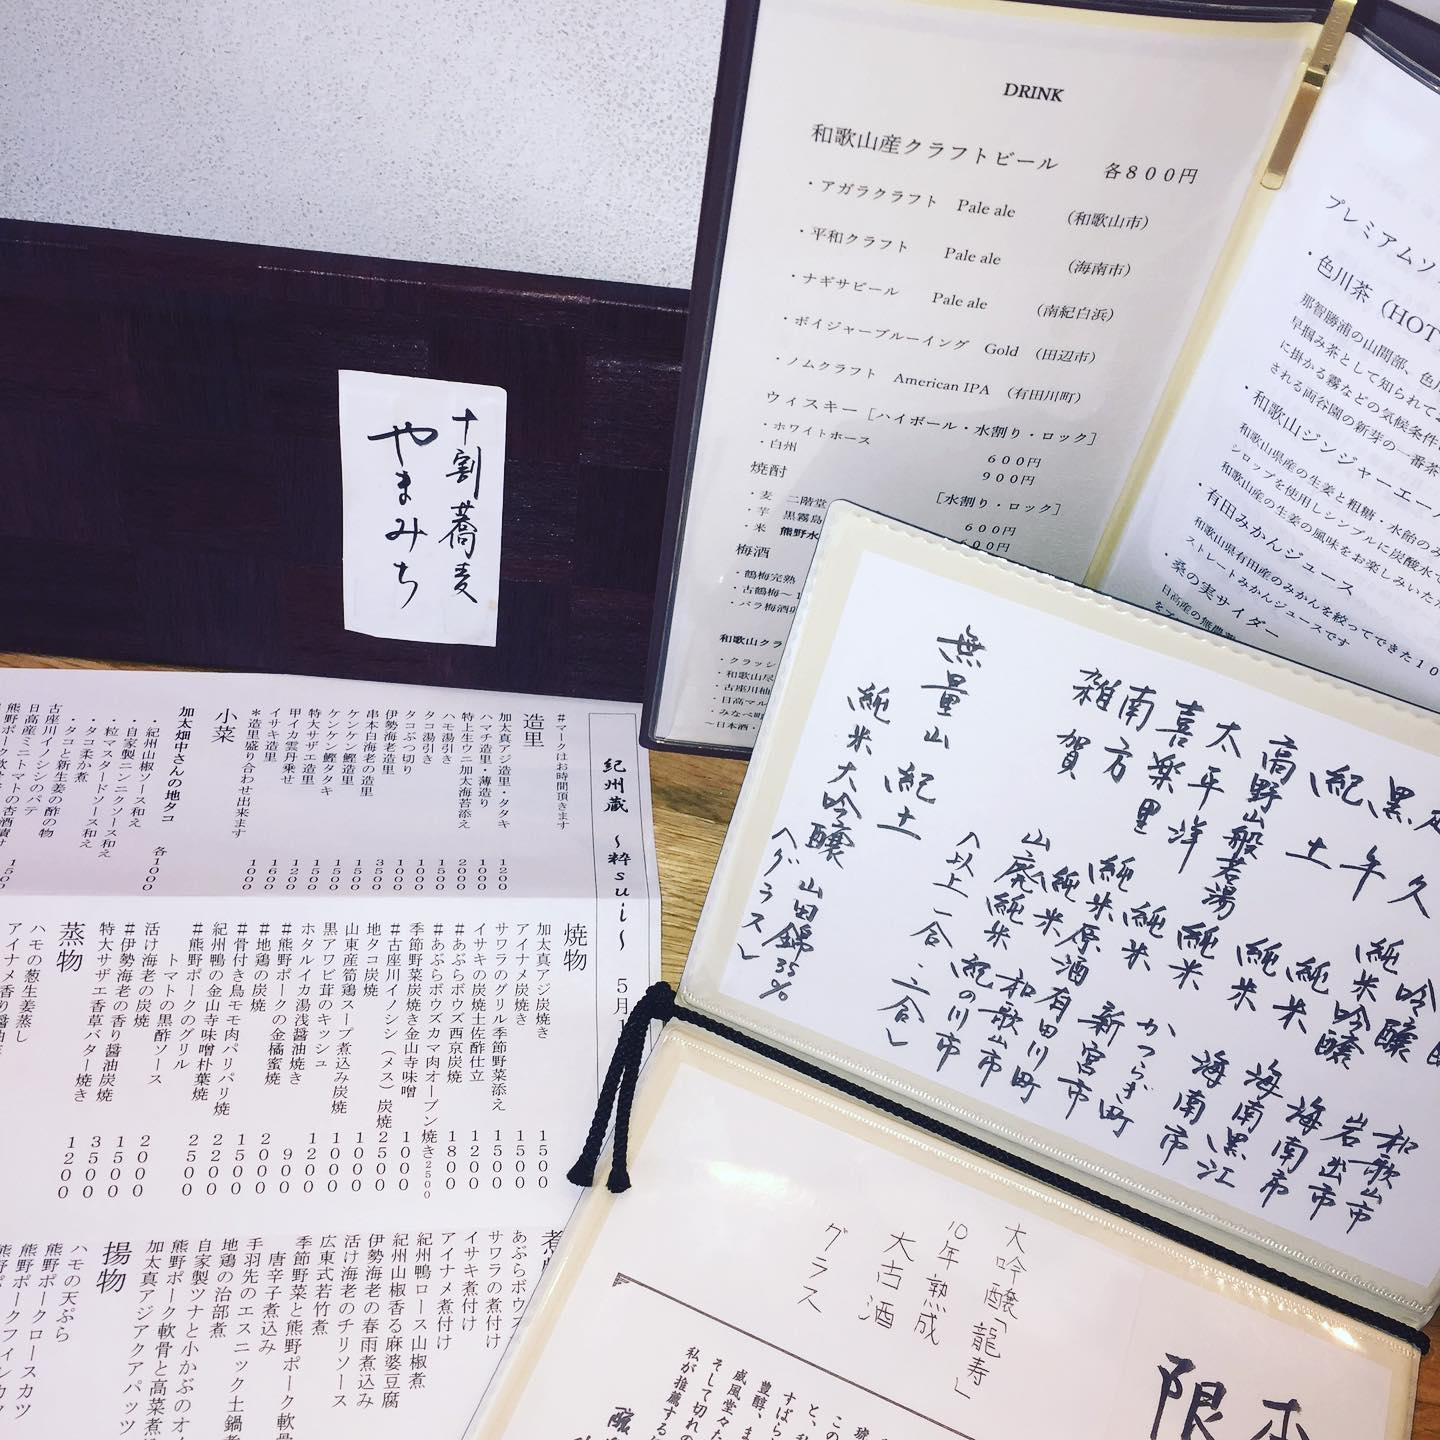 十割蕎麦
やまみち
DRINK
和歌山産クラフトビール 各800円
・アガラクラフト Pale ale (和歌山市)
・平和クラフト Pale ale (海南市)
・ナギサビール Pale ale (南紀白浜)
・ボイジャーブルーイング Gold (田辺市)
・ノムクラフト American IPA (有田川町)
ウィスキー [ハイボール・水割り・ロック]
・ホワイトホース 600円
・白州 900円
焼酎 [水割り・ロック]
・麦 二階堂 600円
・芋 黒霧島 600円
・米 熊野水
梅酒
・鶴梅完熟
・古鶴梅~1
・バラ梅酒
和歌山クラ
・クラッシ
・和歌山
・古座川柚
・日高マル
・みなべ町
~日本酒・
プレミアムソ
・色川茶(HOT
那智勝浦の山間部、色川
早掴み茶として知られて
に掛かる霧などの気候条件
される両谷園の新芽の一番茶
・和歌山ジンジャーエール
和歌山県産の生姜と粗糖・水飴のみ
シロップを使用しシンプルに炭酸水で
和歌山産の生姜の風味をお楽しみいただ
・有田みかんジュース
和歌山県有田産のみかんを絞ってできた10
ストレートみかんジュースです
・桑の実サイダー
日高産の無農薬
久 吟醸 和歌山市
黒牛 純米吟醸 岩出市
紀土 純米 海南市
高野山般若湯 純米 海南黒江
太平洋 純米 海南市
喜楽里 純米 かつらぎ町
南方 純米原酒 新宮市
雑賀 純米 有田川町
山廃純米 和歌山市
紀の川市
(以上一合・二合)
無量山 紀土
純米大吟醸 山田錦35%
(グラス)
大吟醸「龍寿」
10年熟成
大古酒
グラス
すばら
豊醇、ま
威風堂々た
そして切れの
私が推薦する
限
紀州蔵 ~粋sui~ 5月1
#マークはお時間頂きます
造里
加太真アジ造里・タタキ 1200
ハマチ造里・薄造り 1000
特上生ウニ加太海苔添え 2000
ハモ湯引き 1500
タコ湯引き 1000
タコぶつ切り 1000
伊勢海老造里 3500
串本白海老の造里 1500
ケンケン鰹造里 1500
ケンケン鰹タタキ 1500
特大サザエ造里 1500
甲イカ雲丹乗せ 1200
イサキ造里 1600
*造里盛り合わせ出来ます 1000
小菜
加太畑中さんの地タコ
・紀州山椒ソース和え 各1000
・自家製ニンニクソース和え
・粒マスタードソース和え
・タコ柔か煮
・タコと新生姜の酢の物
古座川イノシシのパテ
日高産ミニトマトの杏酒漬け 1500
熊野ポーク軟
焼物
加太真アジ炭焼き 1500
アイナメ炭焼き 1500
サワラのグリル季節野菜添え 1500
イサキの炭焼土佐酢仕立 1500
#あぶらボウズ西京炭焼 1800
#あぶらボウズカマ肉オーブン焼き 2500
季節野菜炭焼と金山寺味噌 1000
#古座川イノシシ(メス)炭焼 2500
地タコ炭焼 1000
山東産筍鶏スープ煮込み炭焼 1000
黒アワビ茸のキッシュ 1000
ホタルイカ湯浅醤油焼き 1200
#熊野ポークの金橘蜜焼 900
#地鶏の炭焼 2000
#骨付き鳥モモ肉パリパリ焼 1500
紀州鴨の金山寺味噌朴葉焼 2200
#熊野ポークのグリル 2500
トマトの黒酢ソース
活け海老の炭焼 2000
#伊勢海老の香り醤油炭焼 3500
特大サザエ香草バター焼き 1500
蒸物
ハモの葱生姜蒸し 1200
アイナメ香り醤油蒸
煮物
あぶらボウズ
サワラの煮付け
イサキ煮付け
アイナメ煮付け
紀州鴨ロース山椒煮
紀州山椒香る麻婆豆腐
伊勢海老の春雨煮込み
活け海老のチリソース
広東式若竹煮
季節野菜と熊野ポーク軟骨
唐辛子煮込み
手羽先のエスニック土鍋煮
地鶏の治部煮
自家製ツナと小かぶのオ
熊野ポーク軟骨と高菜煮
加太真アジアクアパッツ
揚物
ハモの天ぷら
熊野ポークロースカツ
熊野ポークフィレカツ